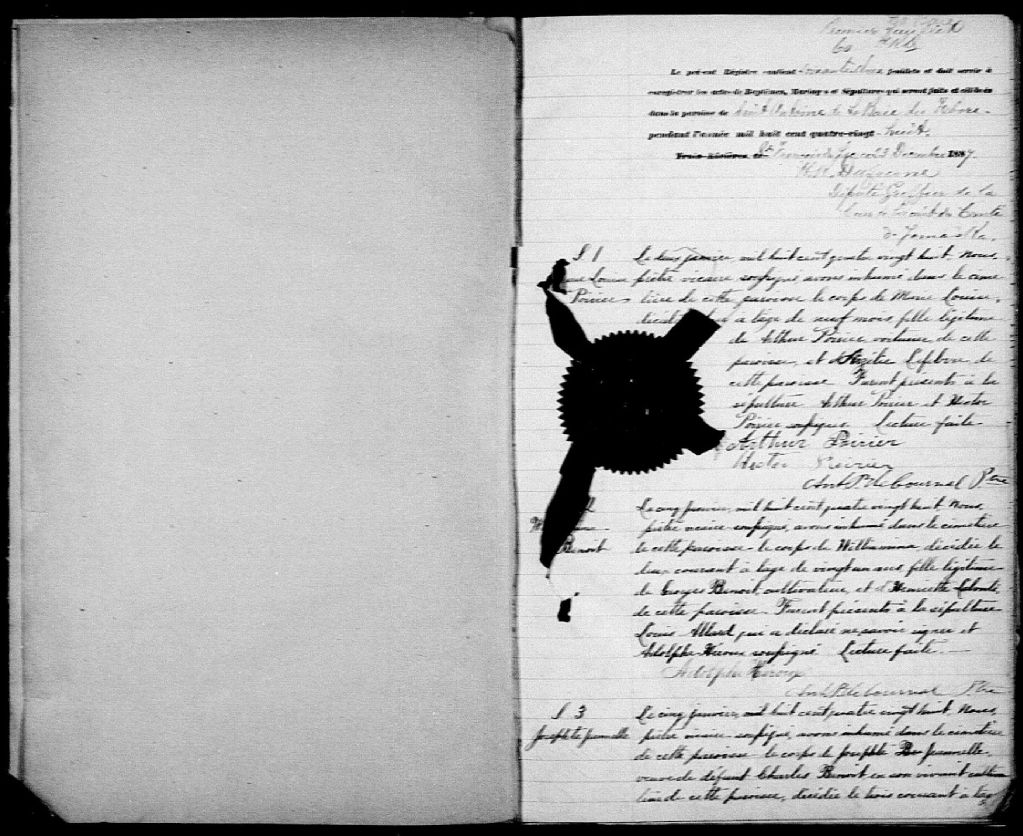 Premier feuillet
Le présent Régistre contient soixante feuillets et doit servir à
enregistrer les actes de Baptêmes, Mariages et Sépultures qui seront faits et célébrés
dans la paroisse de Saint Antoine de La Baie du Febvre
pendant l'année mil huit cent quatre-vingt-huit.
Trois-Rivières, ce 23 Decembre 1887.
Député Greffier de la
Cour de Circuit du Comté
d'Yamaska.
S. 1
Louise
Poirier
Le deux janvier, mil huit cent quatre vingt huit. Nous,
prêtre vicaire soussigné avons inhumé dans le cime
tière de cette paroisse le corps de Marie Louise,
à l'âge de neuf mois, fille légitime
de Arthur Poirier voiturier de cette
paroisse, et d' Lefebvre de
cette paroisse. Furent présents à la
sépulture Arthur Poirier et Hector
Poirier soussignés. Lecture faite.
Arthur Poirier
Hector Poirier
Ptre
Benoit
Le cinq janvier, mil huit cent quatre vingt huit. Nous,
prêtre vicaire soussigné, avons inhumé dans le cimetière
de cette paroisse le corps de Willavina, décédée le
deux courant à l'âge de vingt un ans fille légitime
de Georges Benoit, cultivateur, et d'Henriette
de cette paroisse. Furent présents à la sépulture
Louis Allard qui a déclaré ne savoir signer et
Adolphe Heroux soussigné. Lecture faite.
Adolphe Heroux
Ptre
S 3
Josephte Jannelle
Le cinq janvier, mil huit cent quatre vingt huit, Nous,
prêtre vicaire soussigné, avons inhumé dans le cimetière
de cette paroisse le corps de Josephte Jannelle,
veuve de défunt Charles Benoit en son vivant cultiva
teur de cette paroisse, décédée le trois courant à l'âge